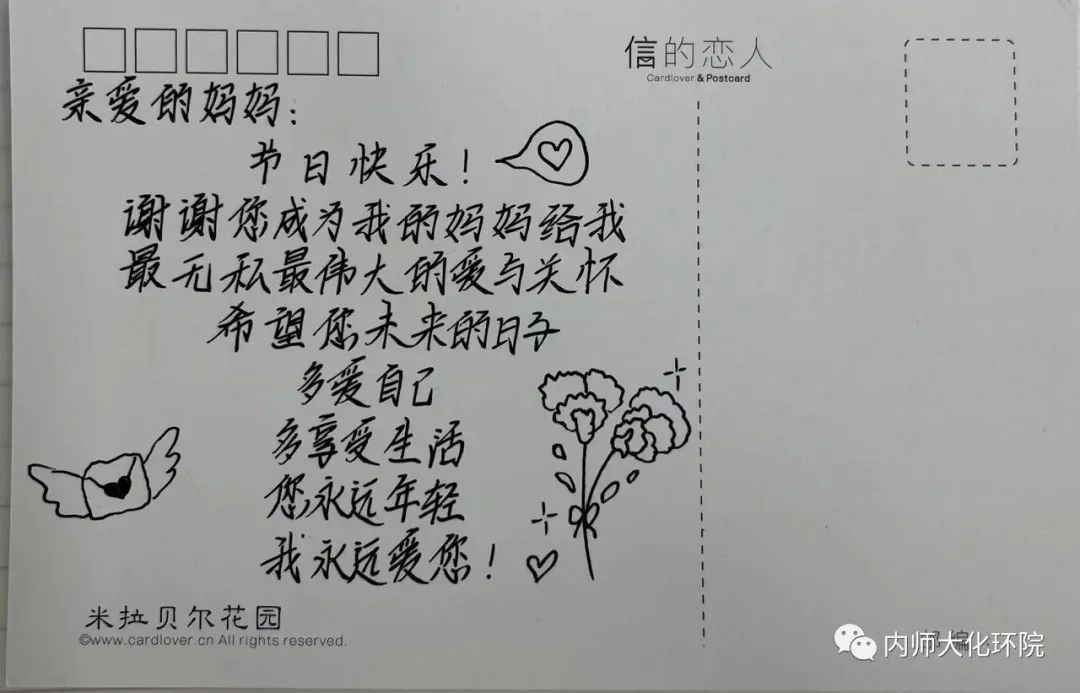 信的恋人
Cardlover & Postcard
亲爱的妈妈:
节日快乐!
谢谢您成为我的妈妈给我
最无私最伟大的爱与关怀
希望您未来的日子
多爱自己
多享受生活
您永远年轻
我永远爱您!
米拉贝尔花园
©www.cardlover.cn All rights reserved.
内师大化环院